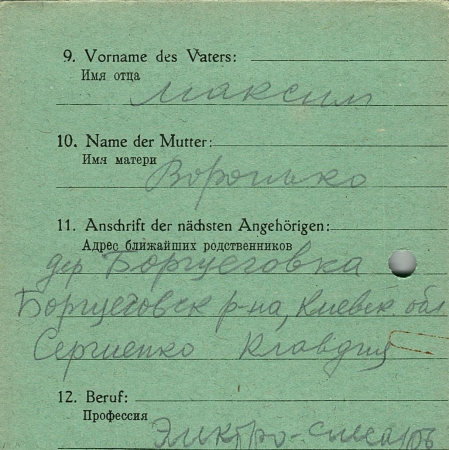 9. Vorname des Vaters:
Имя отца
Максим
10. Name der Mutter:
Имя матери
Воронько
11. Anschrift der nächsten Angehörigen:
Адрес ближайших родственников
дер Борщеговка
Борщеговск р-на, Киевск. обл
Сергиенко Клавдия
12. Beruf:
Профессия
Электро-слесарь